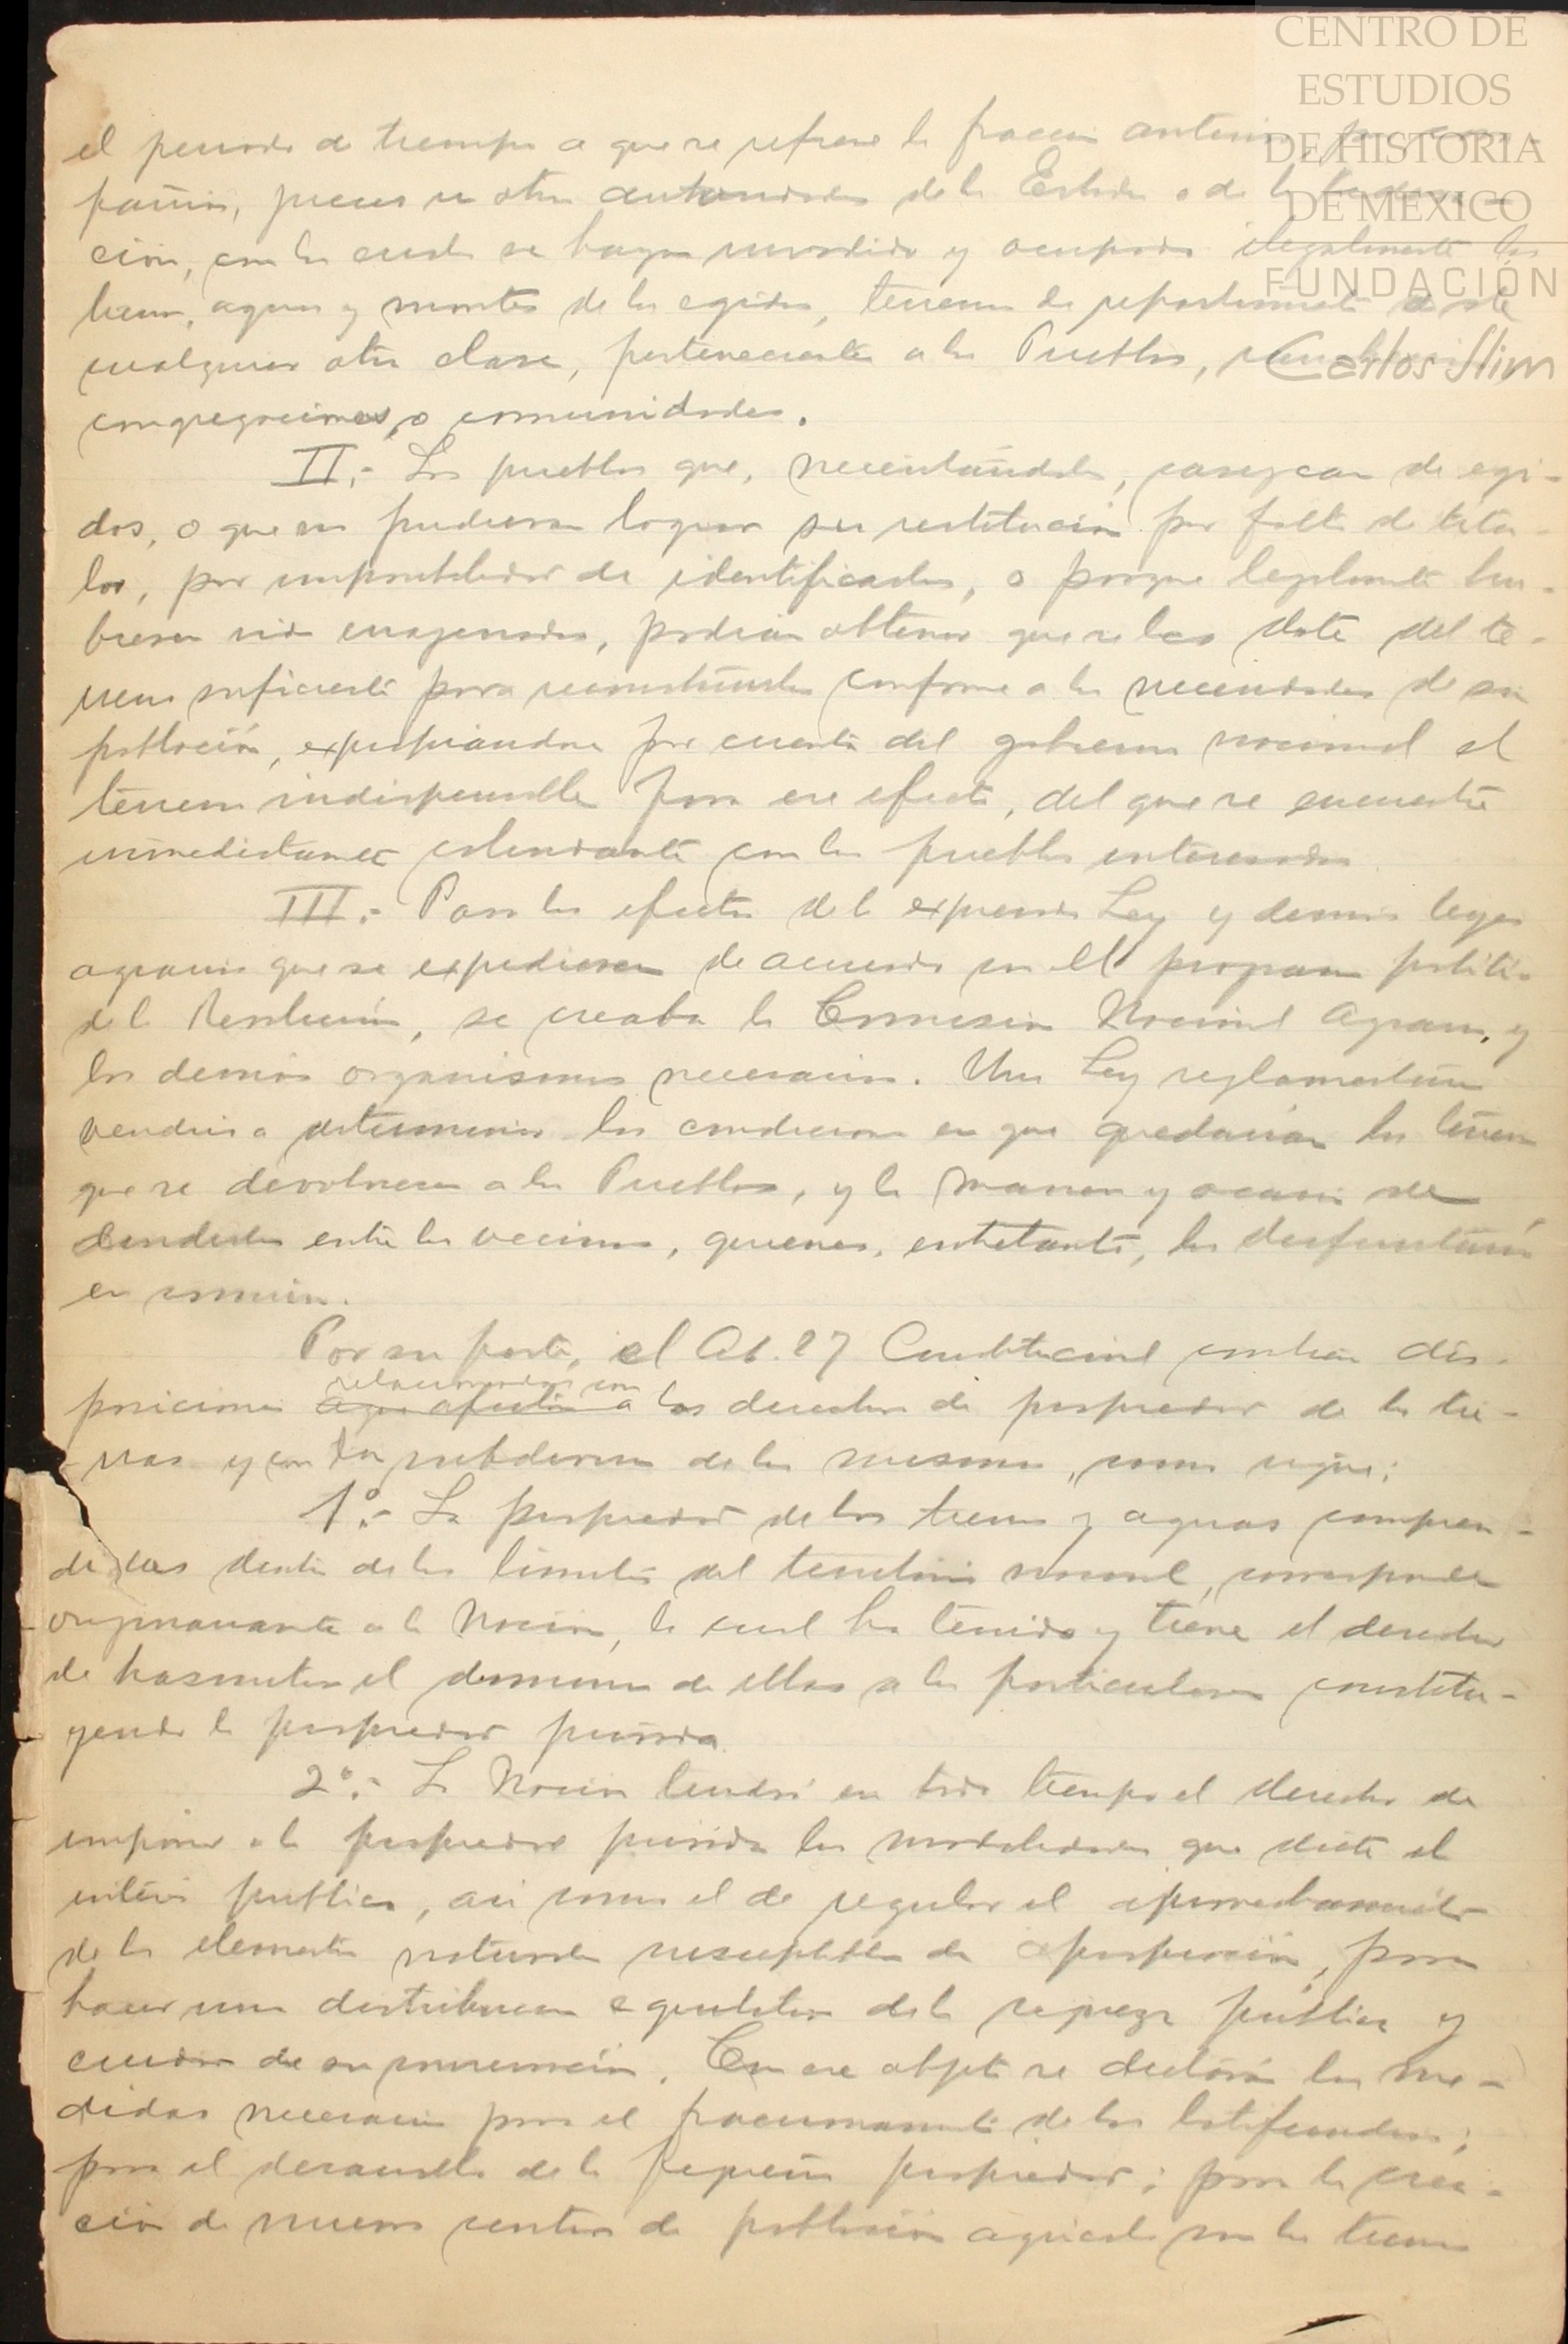 CENTRO DE
ESTUDIOS
DE HISTORIA
DE MÉXICO
FUNDACIÓN
Carlos Slim
el periodo de tiempo a que se refiere la fracción anterior, por com-
pañías, jueces u otras autoridades de los Estados o de la Federa-
ción, con las cuales se hayan invadido y ocupado ilegalmente los
terrenos, aguas y montes de los egidos, terrenos de repartimiento o de
cualquier otra clase, pertenecientes a los Pueblos,
congregaciones, o comunidades.
II.- Los pueblos que, necesitándolos, carezcan de egi-
dos, o que no pudieran lograr su restitución por falta de títu-
los, por imposibilidad de identificarlos, o porque legalmente hu-
bieran sido enagenados, podrían obtener que se les dote del te-
rreno suficiente para reconstruirlos conforme a las necesidades de su
población, expropiándose por cuenta del gobierno nacional el
terreno indispensable para ese efecto, del que se encuentre
inmediatamente colindante con los pueblos interesados
III.- Para los efectos de la expresada Ley y demás leyes
agrarias que se expidieran de acuerdo con el programa político
de la Revolución, se creaba la Comisión Nacional Agraria, y
los demás organismos necesarios. Una Ley reglamentaria
vendría a determinar las condiciones en que quedarían los terrenos
que se devolvieran a los Pueblos, y la manera y ocasión de
dividirlos entre los vecinos, quienes, entretanto, los disfrutarían
en común.
Por su parte, el Art. 27 Constitucional contiene dis-
relacionadas con
posiciones que afectan a los derechos de propiedad de las tie-
rras y con la subdivisión de las mismas, como sigue:
1°.- La propiedad de las tierras y aguas compren-
didas dentro de los límites del territorio nacional, corresponde
originariamente a la Nación, la cual ha tenido y tiene el derecho
de trasmitir el dominio de ellas a los particulares constitu-
yendo la propiedad privada
2°.- La Nación tendrá en todo tiempo el derecho de
imponer a la propiedad privada las modalidades que dicte el
interés público, así como el de regular el aprovechamiento
de los elementos naturales susceptibles de apropiación, para
hacer una distribución equitativa de la riqueza pública y
cuidar de su conservación. Con ese objeto se dictarán las me-
didas necesarias para el fraccionamiento de los latifundios;
para el desarrollo de la pequeña propiedad; para la crea-
ción de nuevos centros de población agrícola con las tierras